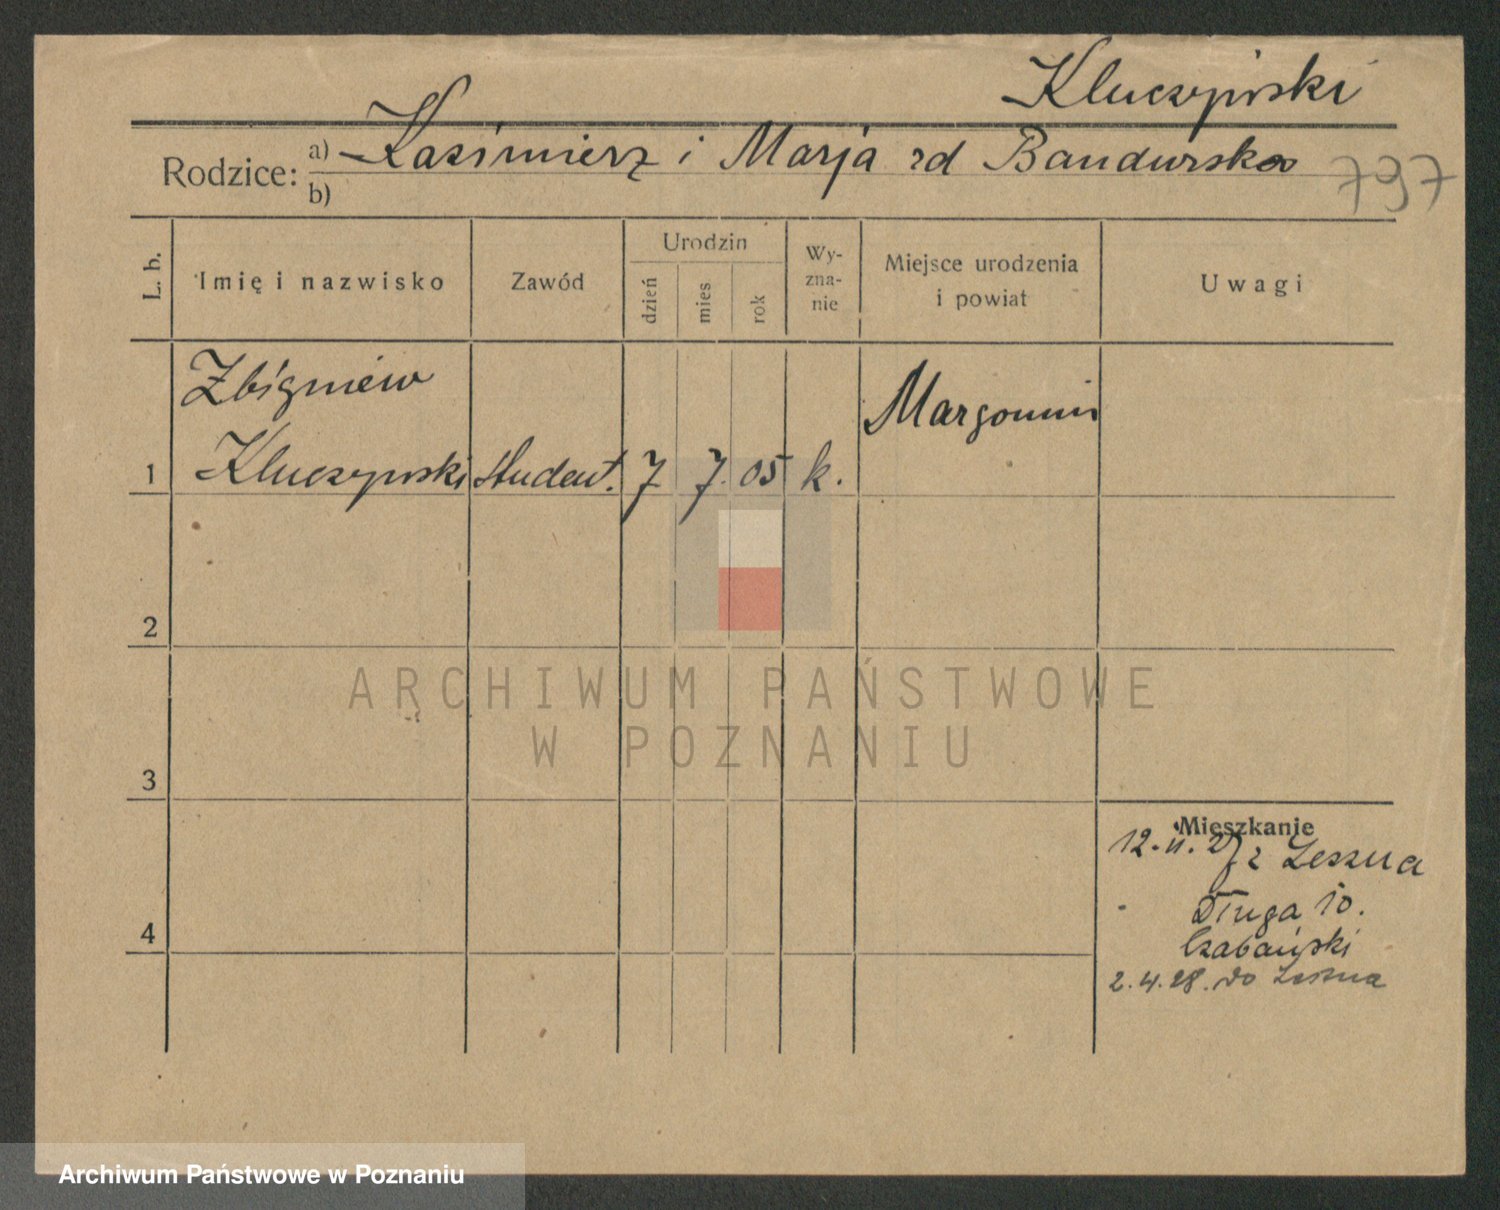 Kluczyński
Rodzice: a) Kazimierz i Marja rd Bandurska
b)
797
L. b.
Imię i nazwisko
Zawód
Urodzin
dzień
mies
rok
Wy-
zna-
nie
Miejsce urodzenia
i powiat
Uwagi
Zbigniew
Margonin
1 Kluczyński student. 7 7. 05 k.
2
3
4
Mieszkanie
12. 11. 27 z Leszna
Długa 10.
Czabański
2. 4. 28. do Leszna
ARCHIWUM PAŃSTWOWE
W POZNANIU
Archiwum Państwowe w Poznaniu